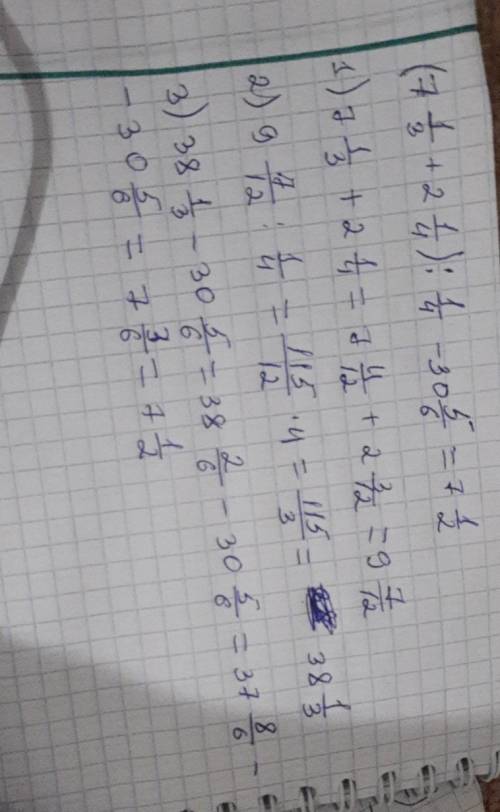 (7 1/3 + 2 1/4) : 1/4 - 30 5/6 = 7 1/2
1) 7 1/3 + 2 1/4 = 7 4/12 + 2 3/12 = 9 7/12
2) 9 7/12 : 1/4 = 115/12 · 4 = 115/3 = 38 1/3
3) 38 1/3 - 30 5/6 = 38 2/6 - 30 5/6 = 37 8/6 -
- 30 5/6 = 7 3/6 = 7 1/2